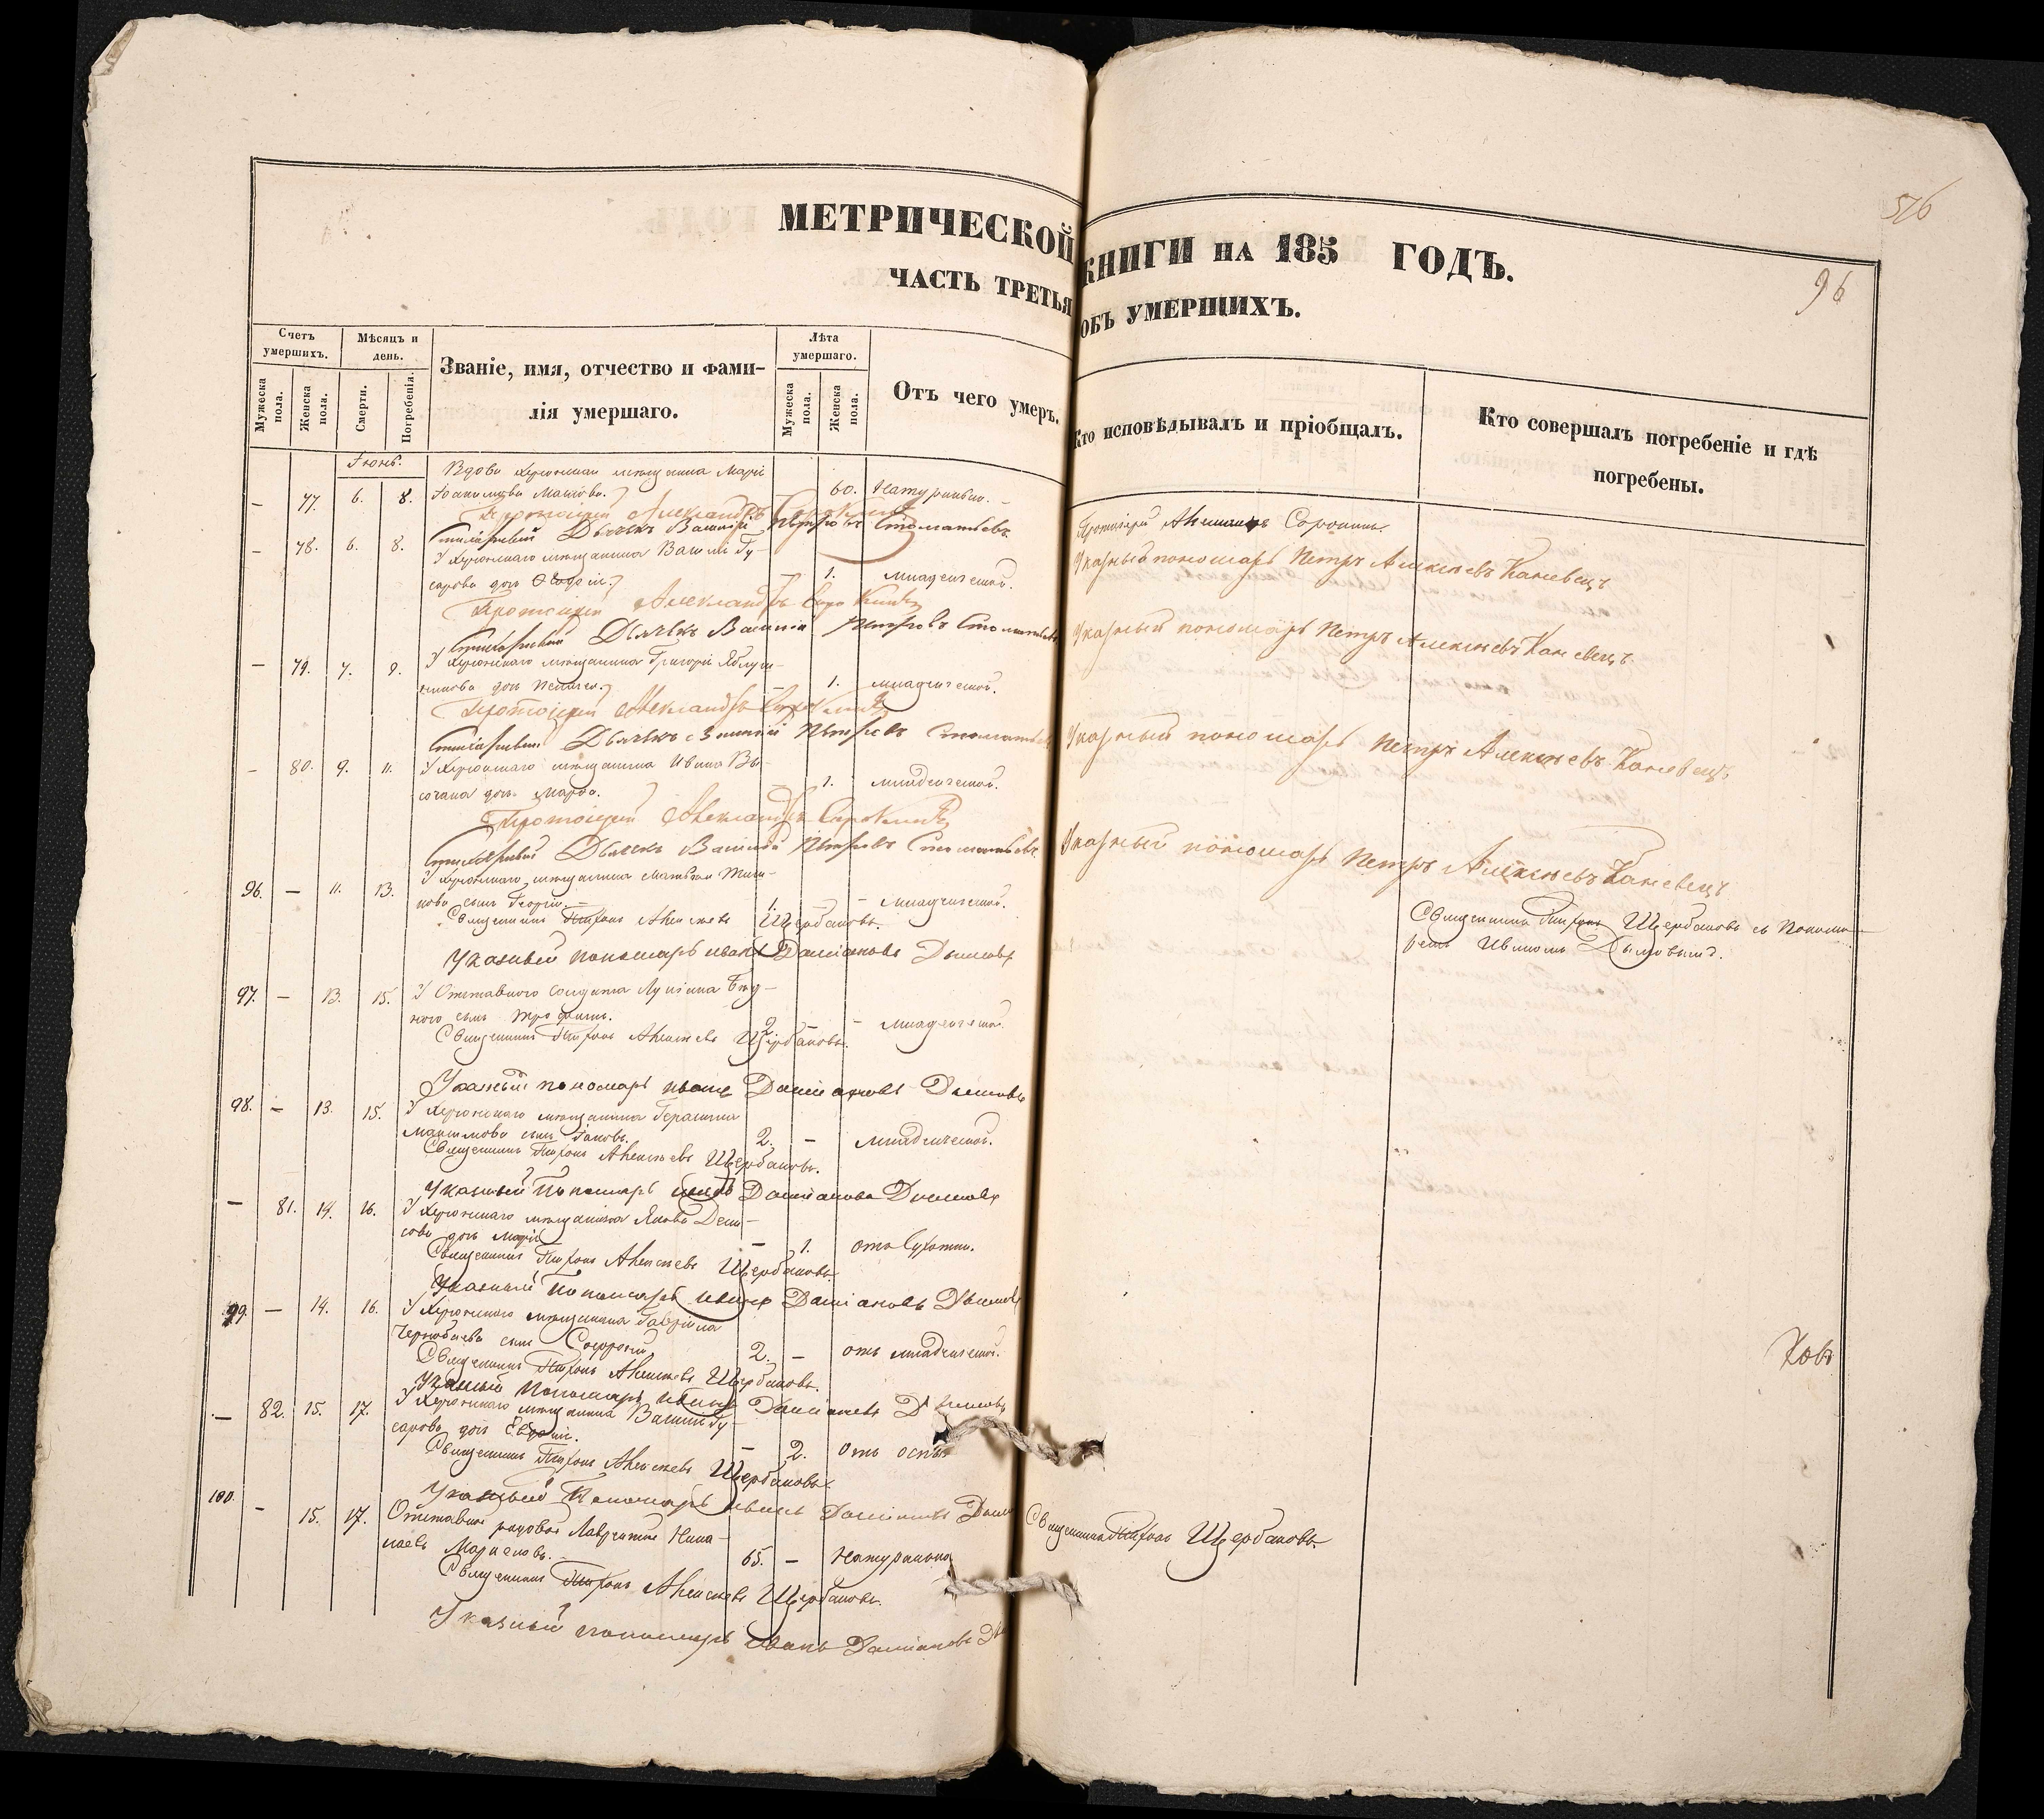 576
96
МЕТРИЧЕСКОЙ КНИГИ НА 185 ГОДЪ.
ЧАСТЬ ТРЕТЬЯ ОБЪ УМЕРШИХЪ.
Счетъ умершихъ.
Мѣсяцъ и день.
Званіе, имя, отчество и фами-
лія умершаго.
Лѣта умершаго.
Отъ чего умеръ.
Кто исповѣдывалъ и пріобщалъ.
Кто совершалъ погребеніе и гдѣ
погребены.
Мужеска пола.
Женска пола.
Смерти.
Погребенія.
Мужеска пола.
Женска пола.
Іюнь.
Вдова Херсонская мѣщанка Марія
— 77. 6. 8. 60.
Протоіерей Александръ Сорокинъ
Стихарный Дьячекъ Василій Петровъ Стоматьевъ
Указный пономарь Петръ Алексѣевъ Каневецъ
— 78. 6. 8. У Херсонскаго мѣщанина Василія Гу-
сарова дочь 1. младенческой.
Протоіерей Александръ Сорокинъ
Стихарный Дьячекъ Василій Петровъ Стоматьевъ
Указный пономарь Петръ Алексѣевъ Каневецъ
— 79. 7. 9. У Херсонскаго мѣщанина Григорія Яблуш-
никова дочь 1. младенческой.
Протоіерей Александръ Сорокинъ
Стихарный Дьячекъ Василій Петровъ Стоматьевъ
Указный пономарь Петръ Алексѣевъ Каневецъ
— 80. 9. 11. У Херсонскаго мѣщанина Ивана Вы-
сочана дочь Марѳа. 1. младенческой.
Протоіерей Александръ Сорокинъ
Стихарный Дьячекъ Василій Петровъ Стоматьевъ
Указный пономарь Петръ Алексѣевъ Каневецъ
96. — 11. 13. У Херсонскаго мѣщанина Матвѣя
сынъ Георгій. 1. — младенческой.
Священникъ Алексѣевъ Щербаковъ.
Указный пономарь Иванъ Даміановъ Дымовъ
Священникъ Щербаковъ съ Понома-
ремъ Иваномъ Дымовымъ.
97. — 13. 15. У Отставного солдата Лукіана Бѣд-
ного сынъ Трофимъ. 2. — младенческой.
Священникъ Алексѣевъ Щербаковъ.
Указный пономарь Иванъ Даміановъ Дымовъ
98. — 13. 15. У Херсонскаго мѣщанина Герасима
Максимова сынъ Іаковъ. 2. — младенческой.
Священникъ Алексѣевъ Щербаковъ.
Указный Пономарь Иванъ Даміановъ Дымовъ
— 81. 14. 16. У Херсонскаго мѣщанина Якова Дени-
сова дочь Марія — 1. отъ Сухотки.
Священникъ Алексѣевъ Щербаковъ.
Указный Пономарь Иванъ Даміановъ Дымовъ
99. — 14. 16. У Херсонскаго мѣщанина Гавріила
Чернобаева сынъ Софроній 2. — отъ младенческой.
Священникъ Алексѣевъ Щербаковъ.
Указный Пономарь Иванъ Даміановъ Дымовъ
— 82. 15. 17. У Херсонскаго мѣщанина Василія Гу-
сарова дочь — 2. отъ оспы
Священникъ Алексѣевъ Щербаковъ.
Указный Пономарь Иванъ Даміановъ
100. — 15. 17. Отставной рядовой Лаврентій Нико-
лаевъ 65. — Натурально
Священникъ Щербаковъ.
Священникъ Алексѣевъ Щербаковъ.
Указный пономарь Иванъ Даміановъ